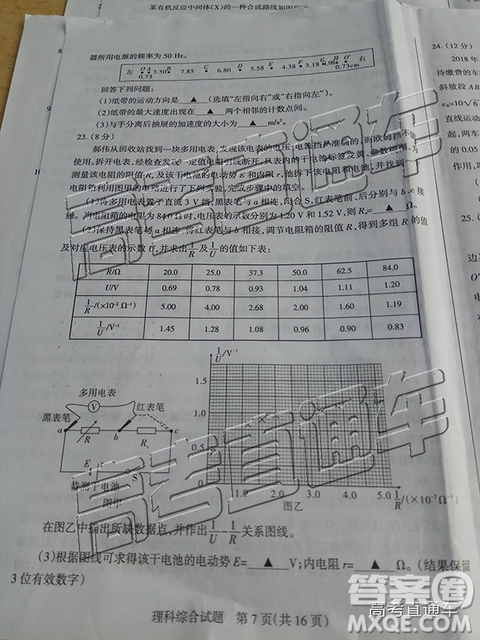 某有机反应中间体(X)的一种合成路线如图
器所用电源的频率为50 Hz。
左 0.73 3.50 7.85 6.80 5.58 4.38 3.18 1.98 0.73cm 右
回答下列问题：
(1)纸带的运动方向是 ▲ (选填"左指向右"或"右指向左")。
(2)纸带的最大速度出现在 ▲ 两个相邻的计数点间。
(3)与手分离后抽屉的加速度的大小为 ▲ m/s²。
23.(8分)
郝伟从回收站找到一块多用电表，发现该电表的电压、电流挡准确的，而欧姆挡不
使用，拆开电表，经检查发现一定值电阻引线断开，
测量该电阻的阻值，及该干电池的电动势E和内阻r，他拆下该电阻和电池，并找到
电阻箱利用图甲的电路进行了下列实验，完成步骤中的填空。
(1)将多用电表置于直流3 V挡，黑表笔与a相连，闭合S，红表笔前、后分别与b、c接
触。当电阻箱的电阻为84.0 Ω时，电压表的示数分别为1.20 V和1.52 V，则Rₓ= ▲ Ω。
(2)保持黑表笔与a相连，将红表笔与b相接，调节电阻箱的阻值R，得到多组R的值
及对应电压表的示数U，并求出1/R及1/U的值如下表：
R/Ω 20.0 25.0 37.3 50.0 62.5 84.0
U/V 0.69 0.78 0.93 1.04 1.11 1.20
1/R/(×10⁻² Ω⁻¹) 5.00 4.00 2.68 2.00 1.60 1.19
1/U/V⁻¹ 1.45 1.28 1.08 0.96 0.90 0.83
1/U/V⁻¹
1.5
1.0
0.5
0 1.0 2.0 3.0 4.0 5.0 1/R/(×10⁻²Ω⁻¹)
图乙
多用电表
V
黑表笔 红表笔
a R b Rₓ c
E S
待测干电池
图甲
在图乙中描出所缺数据点，并作出1/U-1/R关系图线。
(3)根据图线可求得该干电池的电动势E= ▲ V；内电阻r= ▲ Ω。(结果保留
3位有效数字)
理科综合试题 第7页(共16页)
24.(12分)
2018年
待缴费的车
斜坡段AB
v₀=10√6
直线运动
起，两车
(2)
0.05
25.(
高考直通车
高考直通车
高考直通车
答案圈
MXQE.COM
高考直通车